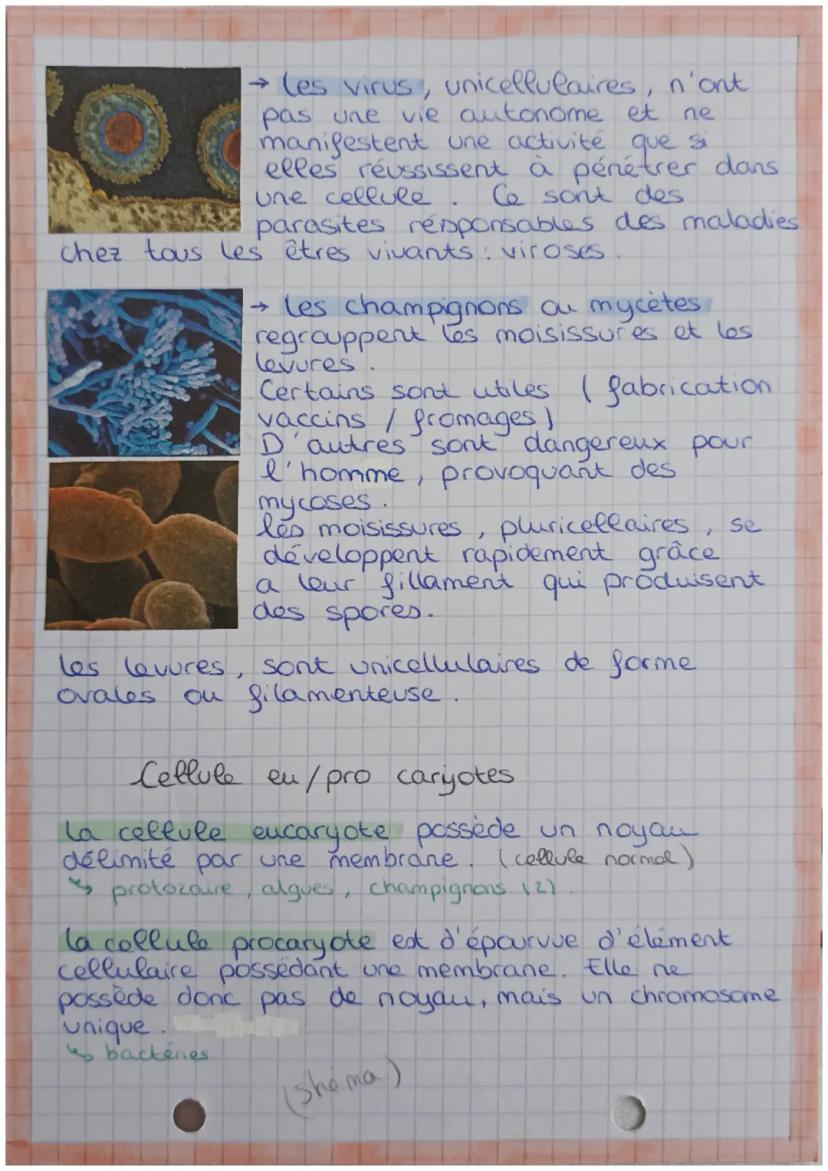 → Les virus, unicellulaires, n'ont
pas une vie autonome et ne
manifestent une activité que si
elles réussissent à pénétrer dans
une cellule. Ce sont des
parasites résponsables des maladies
chez tous les êtres vivants : viroses.
→ Les champignons ou mycètes
regrouppent les moisissures et les
levures.
Certains sont utiles ( fabrication
vaccins / fromages)
D'autres sont dangereux pour
l'homme, provoquant des
mycoses.
Les moisissures, pluricellaires, se
développent rapidement grâce
a leur fillament qui produisent
des spores.
Les levures, sont unicellulaires de forme
ovales ou filamenteuse.
Cellule eu/pro caryotes
La cellule eucaryote possède un noyau
délimité par une membrane. (cellule normal)
↳ protozaire, algues, champignons (2).
La cellule procaryote est d'épourvue d'élément
cellulaire possédant une membrane. Elle ne
possède donc pas de noyau, mais un chromosome
unique.
↳ bactéries
(shéma)